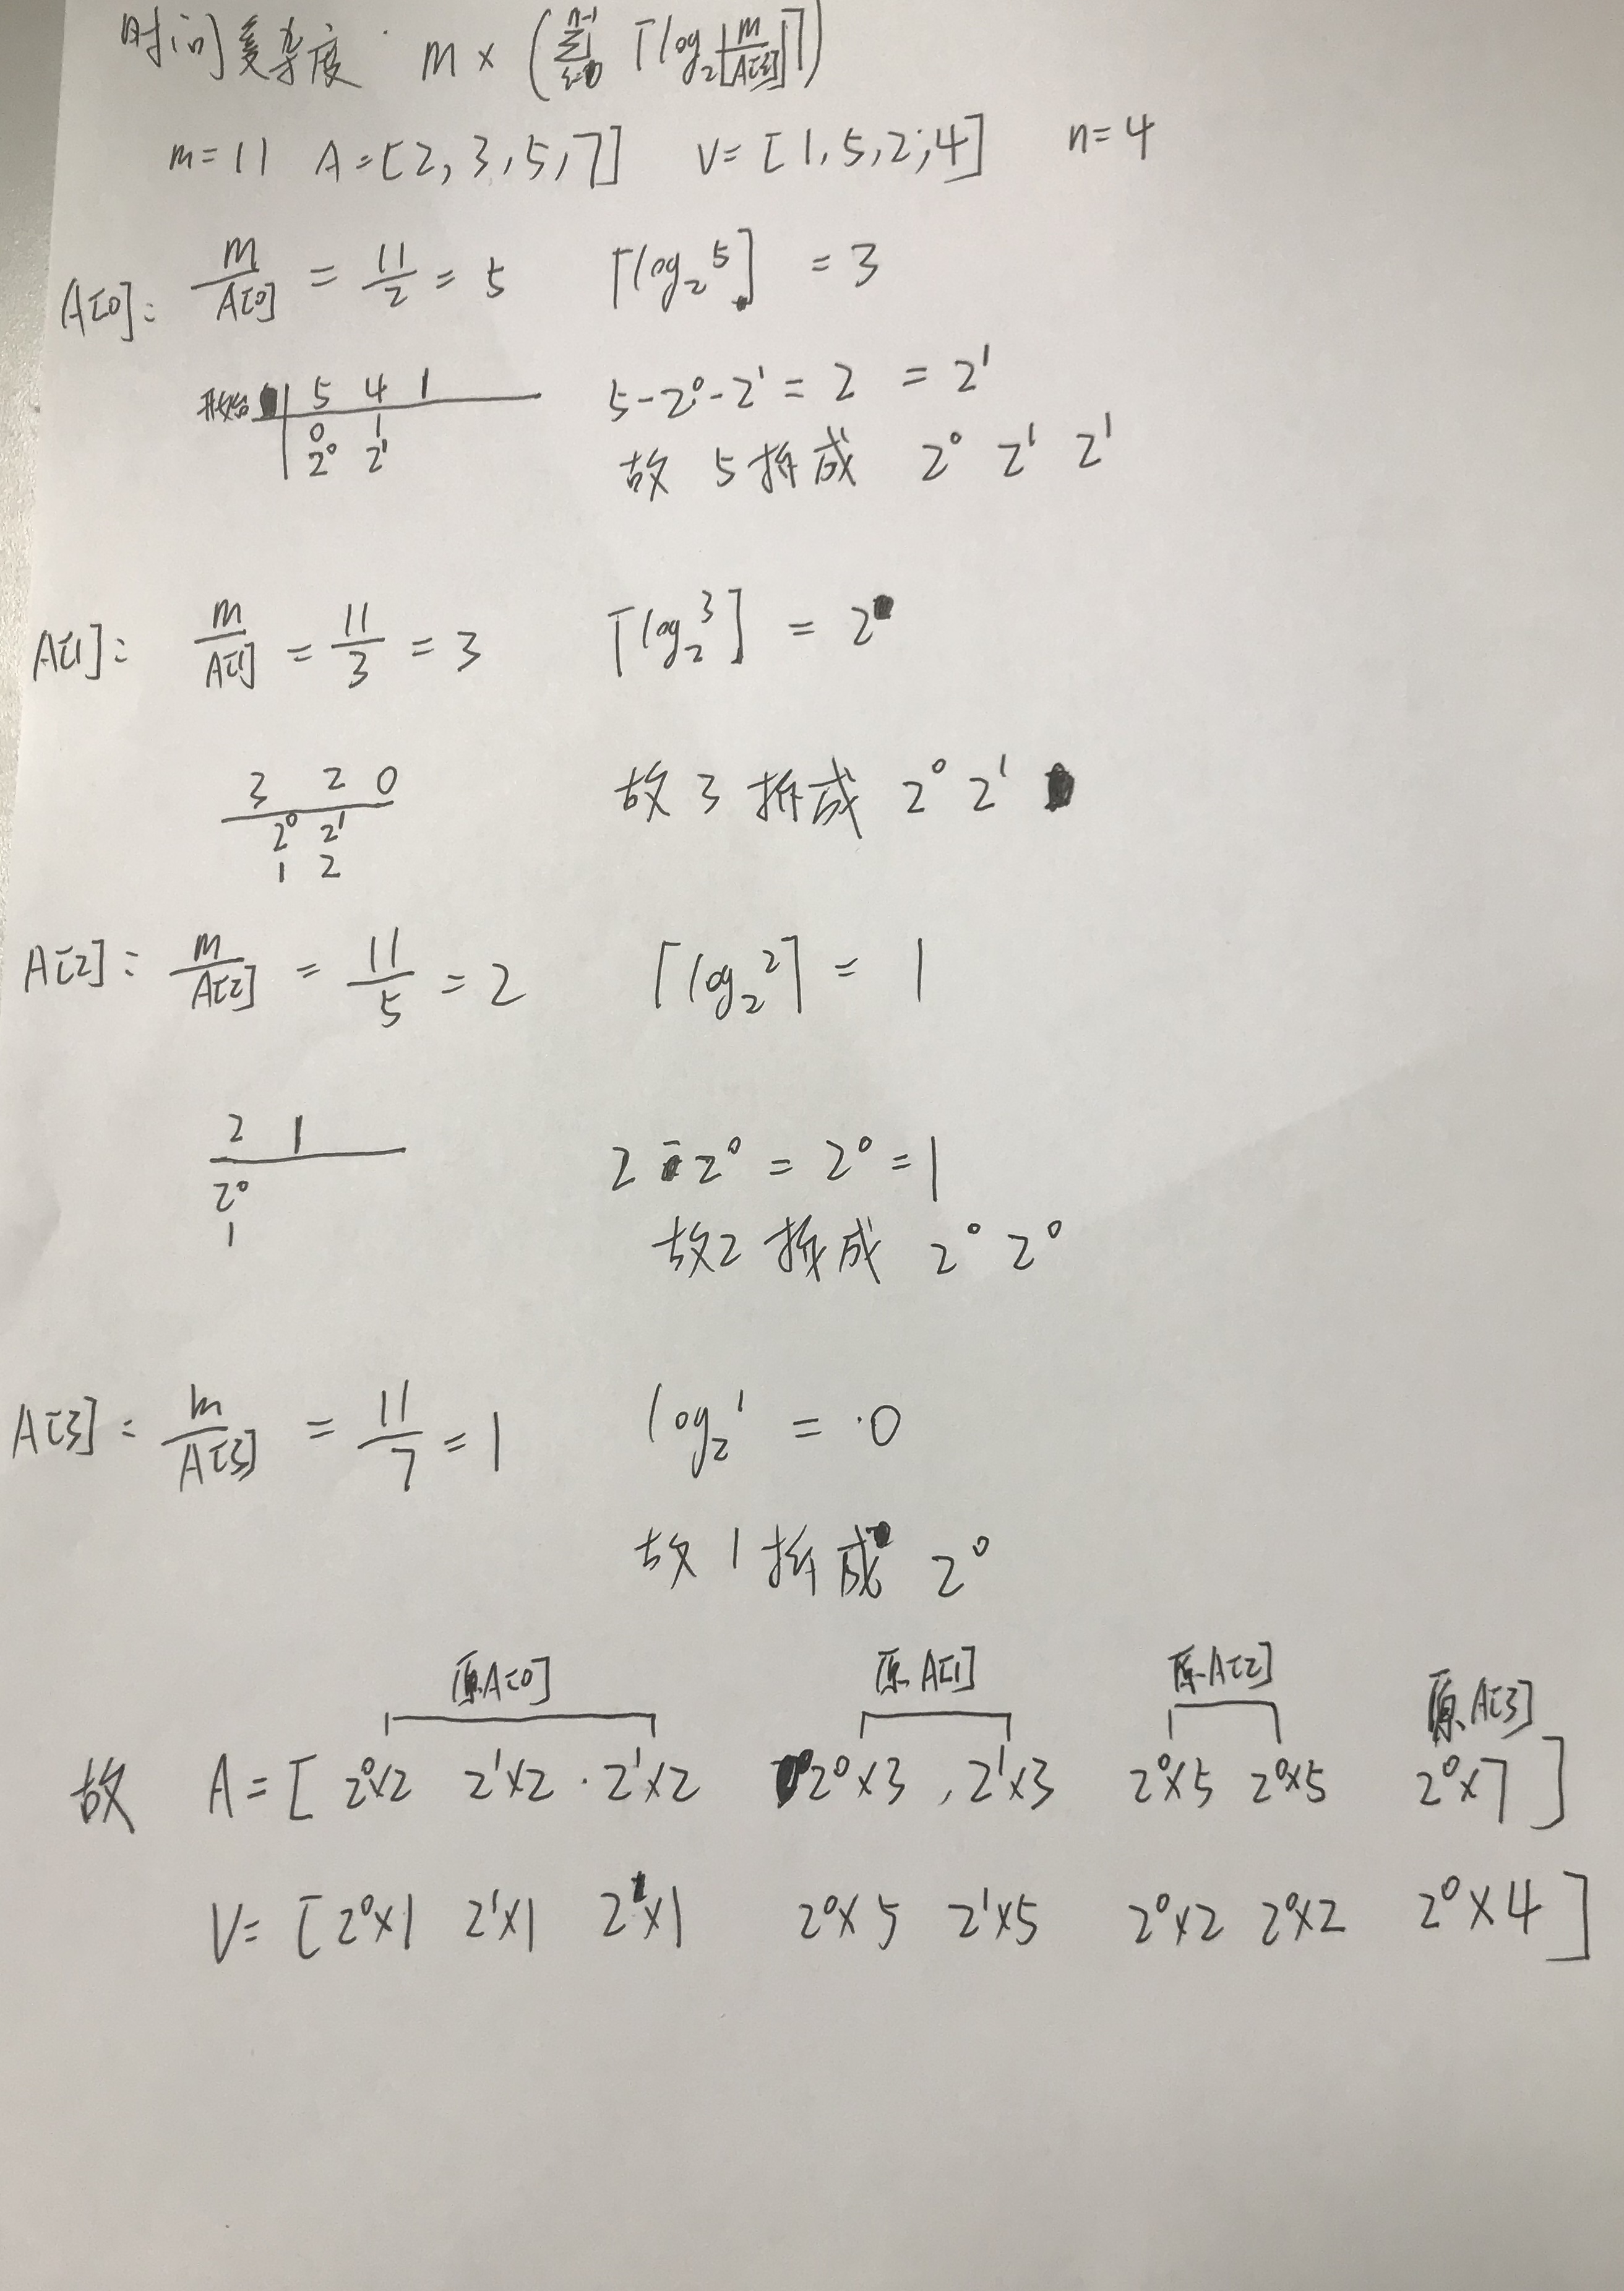 时间复杂度 m × (∑_{i=0}^{n-1} ⌈log₂⌊m/A[i]⌋⌉)
m=11 A=[2,3,5,7] V=[1,5,2,4] n=4
A[0]: m/A[0] = 11/2 = 5 ⌈log₂5⌉ = 3
开始 5 4 1
0 1
2⁰ 2¹
5-2⁰-2¹ = 2 = 2¹
故 5拆成 2⁰ 2¹ 2¹
A[1]: m/A[1] = 11/3 = 3 ⌈log₂3⌉ = 2
3 2 0
2⁰ 2¹
1 2
故 3 拆成 2⁰ 2¹
A[2]: m/A[2] = 11/5 = 2 ⌈log₂2⌉ = 1
2 1
2⁰
1
2-2⁰ = 2⁰ = 1
故2 拆成 2⁰ 2⁰
A[3]: m/A[3] = 11/7 = 1 log₂1 = 0
故 1 拆成 2⁰
原A[0] 原A[1] 原A[2] 原A[3]
故 A=[ 2⁰×2 2¹×2 . 2¹×2 2⁰×3 , 2¹×3 2⁰×5 2⁰×5 2⁰×7 ]
V=[ 2⁰×1 2¹×1 2¹×1 2⁰×5 2¹×5 2⁰×2 2⁰×2 2⁰×4 ]